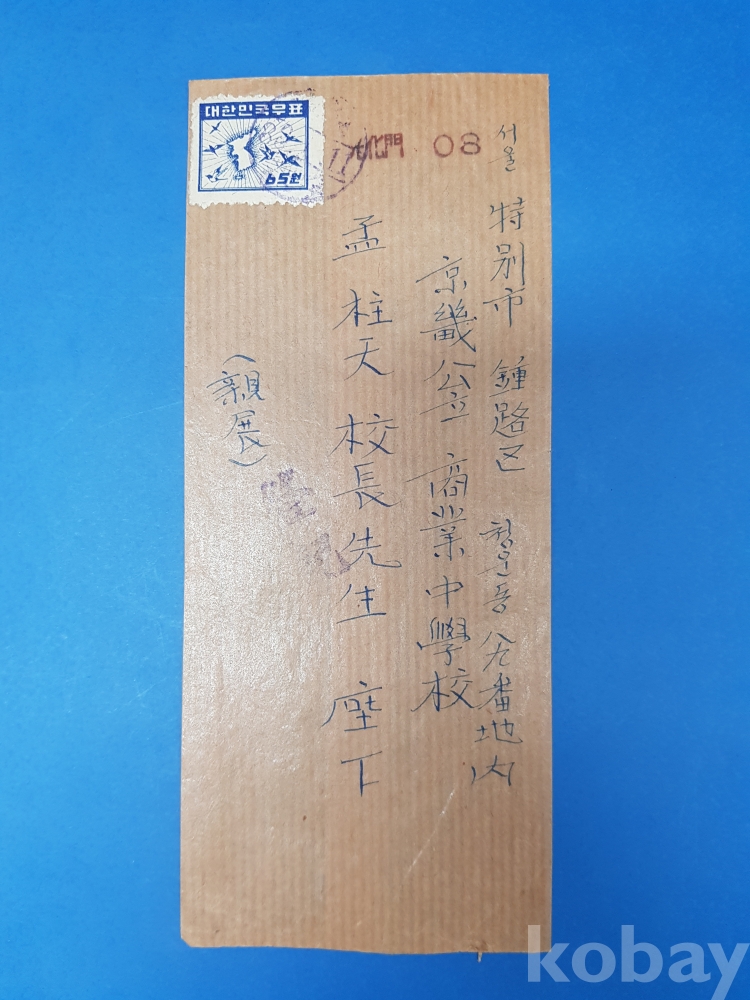 대한민국우표
65원
北門 08
서울 特別市 鍾路区 청운동 八九番地内
京畿公立 商業中學校
孟柱天 校長先生 座下
(親展)
kobay